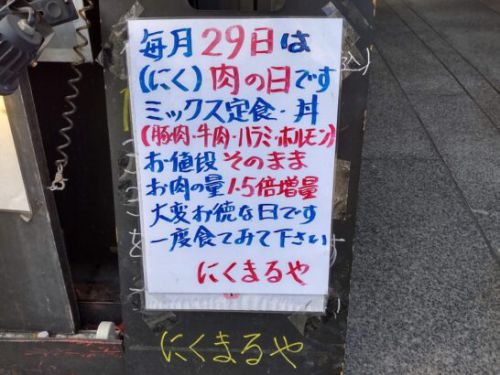 毎月29日は
(にく)肉の日です
ミックス定食・丼
(豚肉・牛肉・ハラミ・ホルモン)
お値段そのまま
お肉の量1.5倍増量
大変お徳な日です
一度食てみて下さい
にくまるや
にくまるや